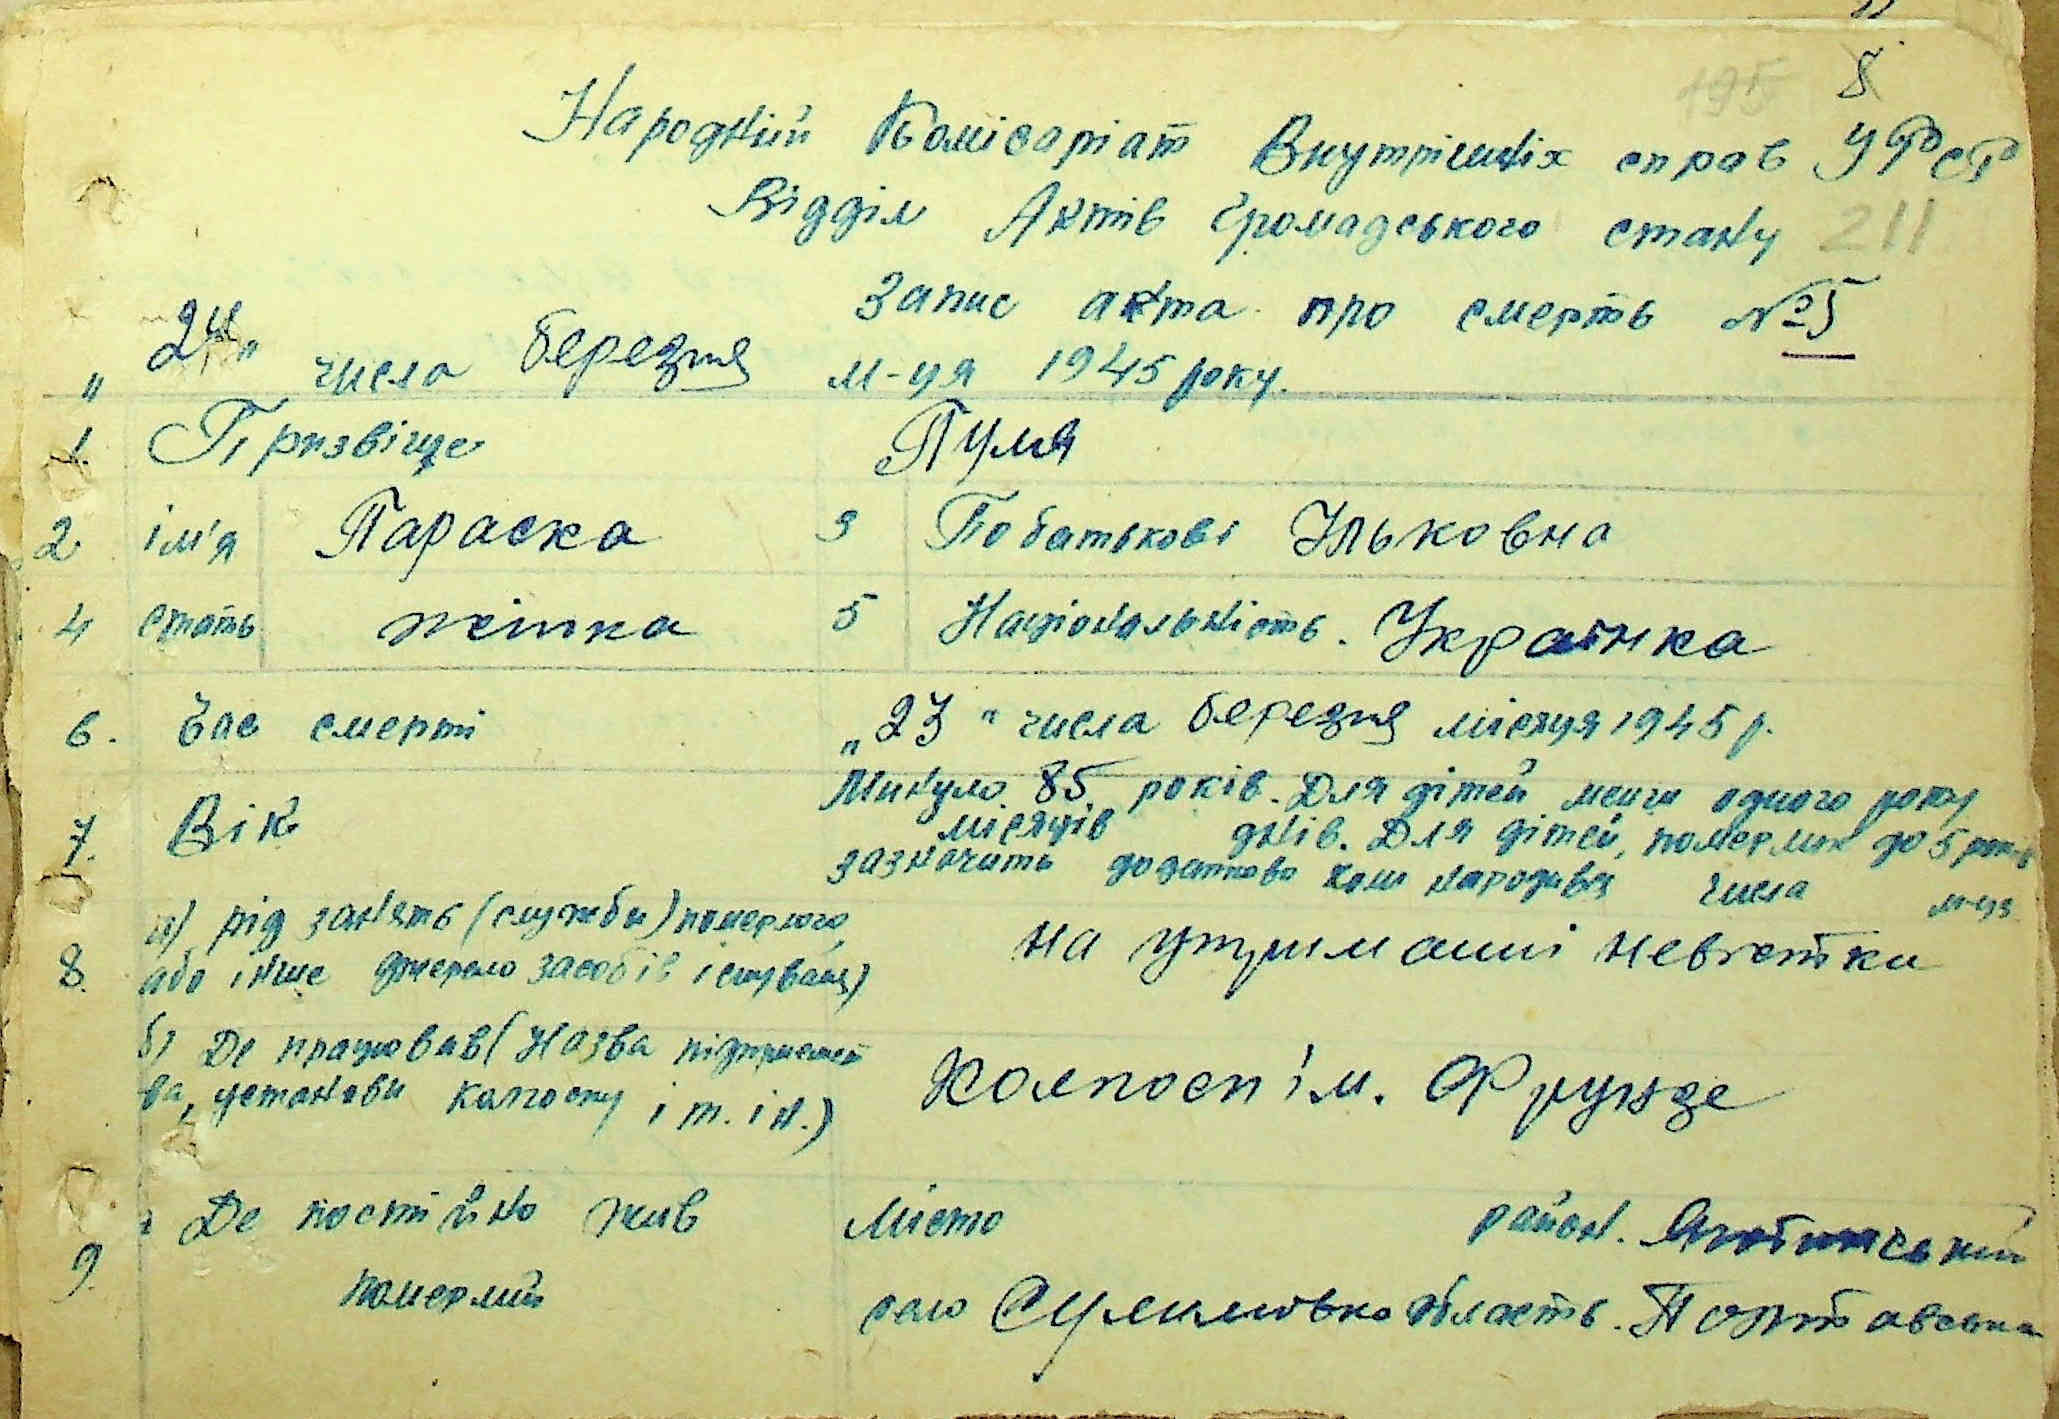 8
195
Народній Комісаріат Внутрішніх справ УРСР
Відділ Актів Громадського стану 211
Запис акта про смерть №5
"24" числа березня м-ця 1945 року.
1. Прізвіще Пуля
2. ім'я Параска 3 По батькові Ільковна
4 стать жінка 5 Національність. Українка
6. Час смерті "23" числа березня місяця 1945 р.
7. Вік Минуло 85 років. Для дітей менш одного року
місяців днів. Для дітей, померлих до 5 років
зазначить додатково коли народився числа м-ця
8. а) рід занять (служби) померлого,
або інше джерело засобів існування) на утриманні невістки
б) Де працював (Назва підприємст
ва, установи колгоспу і т. ін.) Колгосп ім. Фрунзе
9. Де постійно жив місто район. Яготинський
померлий село Сулимовка область. Полтавська